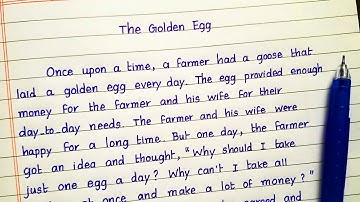 The Golden Egg
Once upon a time, a farmer had a goose that
laid a golden egg every day. The egg provided enough
money for the farmer and his wife for their
day-to-day needs. The farmer and his wife were
happy for a long time. But one day, the farmer
got an idea and thought, "Why should I take
just one egg a day? Why can't I take all
once and make a lot of money?"
agreed and